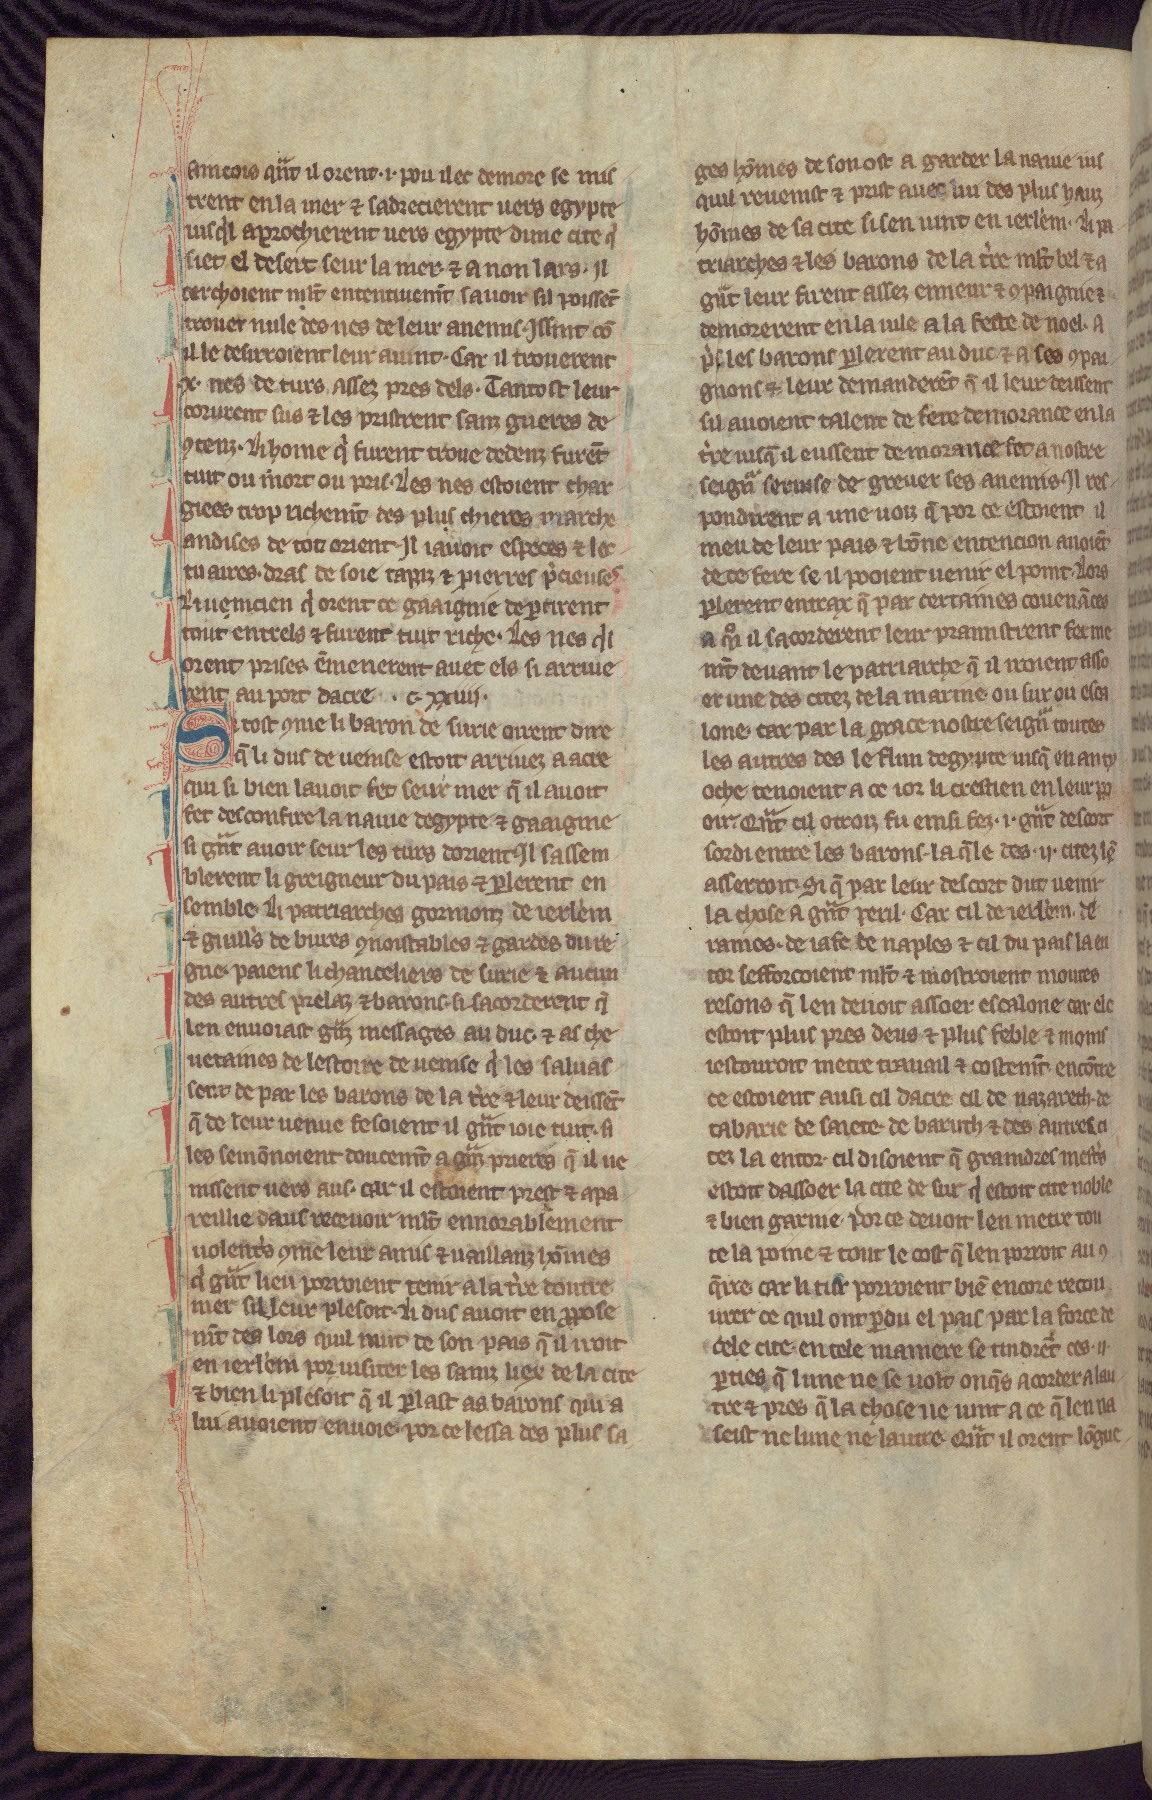 ainicois qͣ̄t il orent .i. pou ilec demore se mis
trent en la mer ⁊ sadrecierent uers egypte
iusq̄l aprochierent uers egypte dune cite q̄
siet el desert seur la mer ⁊ a non lars. Il
cerchoient ml̄t ententiuem̄t sauoir sil poisset̄
trouer nule des nes de leur anemis. Issint cō
il le desirroient leur auint. Car il trouerent
x. nes de turs assez pres dels. Tantost leur
corurent sus ⁊ les pristrent sanz gueres de
ꝯtenz. Li home q̄ furent troue dedenz furēt
tuit ou mort ou pris. Les nes estoient char
giees trop richem̄t des plus chieres marche
andises de tot orient. Il iauoit especes ⁊ lec
tuaires. dras de soie tapiz ⁊ pierres p̄cieuses
Li uenicien q̄ orent ce gaaignie departirent
tout entrels ⁊ furent tuit riche. Les nes q̄l
orent prises ēmenerent auec els si arriue
rent au port dacre. .c. xxiiij.
Si tost ꝯme li baron de surie oirent dire
q̄ li dus de uenise estoit arriuez a acre
qui si bien lauoit fet seur mer q̄ il auoit
fet desconfire la nauie degypte ⁊ gaaignie
si gͣ̄t auoir seur les turs dorient. Il sassem
blerent li greigneur du pais ⁊ ꝑlerent en
semble. Li patriarches gormonz de ierl̄em
⁊ guill̄s de bures ꝯnoistables ⁊ gardes du re
gne. paiens li chanceliers de surie ⁊ aucun
des autres prelaz ⁊ barons. si sacorderent q̄
len enuoiast gͣ̄z messages au duc. ⁊ as che
uetaines de lestoire de uenise q̄ les saluas
sent de par les barons de la t̄re ⁊ leur deisset̄
q̄ de leur uenue fesoient il gͣ̄t ioie tuit. ⁊
les semōnoient doucem̄t a gͣ̄z prieres q̄ il ue
nissent uers aus. car il estoient prest ⁊ apa
reillie daus receuoir ml̄t ennorablement
uolent̄s ꝯme leur amis ⁊ uaillanz hōmes
q̄ gͣ̄t lieu porroient tenir a la t̄re doutre
mer sil leur plesoit. Li dus auoit en ꝓpose
m̄t des lors quil mut de son pais q̄ il iroit
en ierl̄em por uisiter les sainz liex de la cite
⁊ bien li plesoit q̄ il ꝑlast as barons qui a
lui auoient enuoie. por ce lessa des plus sa
ges hōmes de son ost a garder la nauie ius
quil reuenist ⁊ prist auec lui des plus hauz
hōmes de sa cite si sen uint en ierl̄em. Li pa
triarches ⁊ les barons de la t̄re ml̄t bel ⁊ a
gͣ̄t leur firent assez enneur ⁊ ꝯpaignie ⁊
demorerent en la uile a la feste de noel. A
p̄s les barons ꝑlerent au duc ⁊ a ses ꝯpai
gnons ⁊ leur demanderēt q̄ il leur deissent
sil auoient talent de fere demorance en la
t̄re iusq̄ il eussent demorance fet a nostre
seigñ seruise de greuer ses anemis. Il res
pondirent a une uoiz q̄ por ce estoient il
meu de leur pais ⁊ bōne entencion auoiēt
de ce fere se il pooient uenir el point. Lors
ꝑlerent entrax q̄ par certaines couenāces
a qͦi il sacorderent leur pramistrent ferme
m̄t deuant le patriarche q̄ il iroient asso
er une des citez de la marine ou sur ou esca
lone. car par la grace nostre seigñ toutes
les autres des le flun degypte iusq̄ en anty
oche tenoient a ce ior li crestien en leur po
oir. Qͣ̄t cil otroiz fu einsi fez .i. gͣ̄t descort
sordi entre les barons. la q̄le des .ij. citez lē
asserroit. Si q̄ par leur descort dut uenir
la chose a gͣ̄t peril. Car cil de ierl̄em. de
rames. de iafe de naples ⁊ cil du pais la en
tor sefforcoient ml̄t ⁊ mostroient moutes
resons q̄ len deuoit assoer escalone car ele
estoit plus pres deus ⁊ plus feble ⁊ moins
iestouroit metre trauail ⁊ costem̄t. encōtre
ce estoient ausi cil dacre cil de nazareth. de
tabarie de saiete de baruth ⁊ des autres ci
tez la entor. cil disoient q̄ graindres mest̄s
estoit dassoer la cite de sur q̄ estoit cite noble
⁊ bien garnie. por ce deuoit len metre tou
te la poine ⁊ tout le cost q̄ len porroit au ꝯ
q̄rre. car li tur porroient biē encore recou
urer ce quil ont ꝑdu el pais par la force de
cele cite. en cele maniere se tindrēt ces .ij.
ꝑties q̄ lune ne se uolt onq̄s acorder a lau
tre ⁊ pres q̄ la chose ne uint a ce q̄ len na
seist ne lune ne lautre. Qͣ̄t il orent lōgue